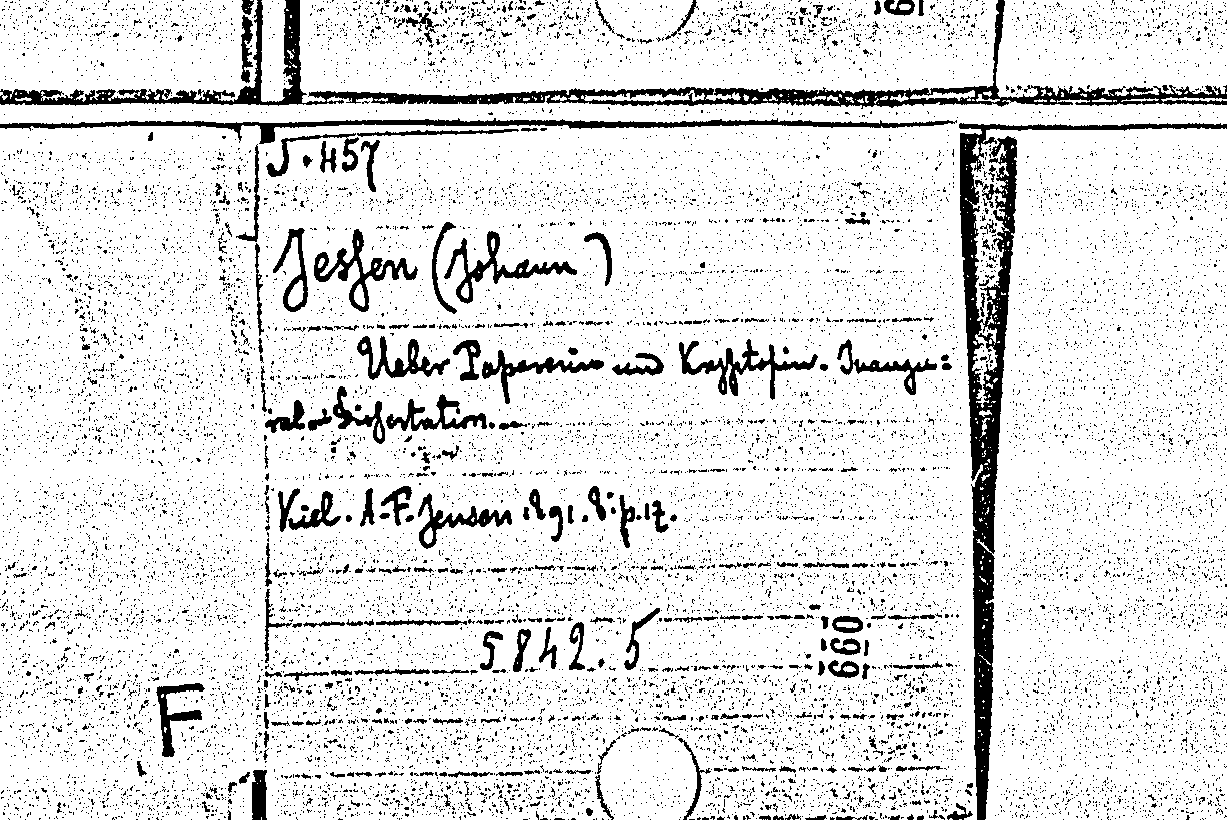 J. 457
Jessen (Johann)
Ueber Papaverin und Kryptopin. Inaugu=
ral-Dissertation.
Kiel. A. F. Jensen 1891. 8° p. 17.
5842.5
660
F